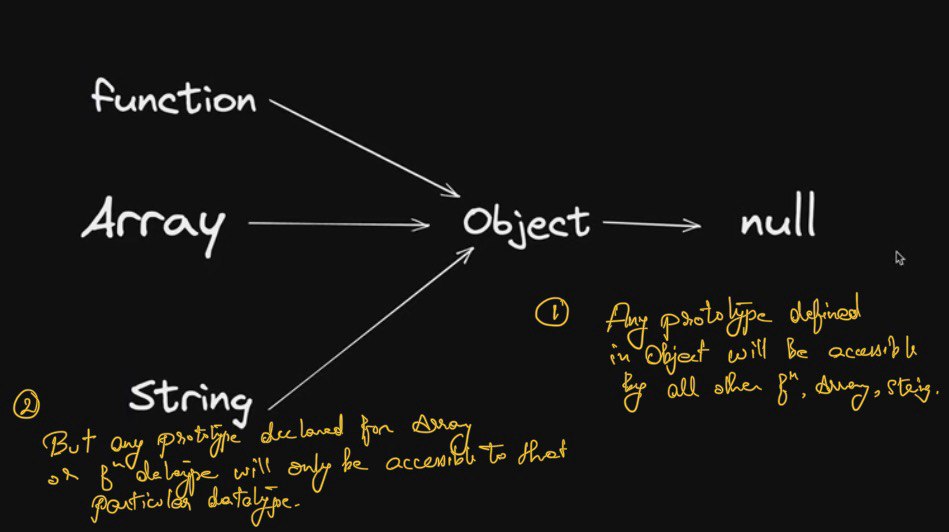 function
Array
Object
null
String
① Any prototype defined
in Object will be accessible
by all other fⁿ, Array, String.
② But any prototype declared for Array
or fⁿ datatype will only be accessible to that
particular datatype.